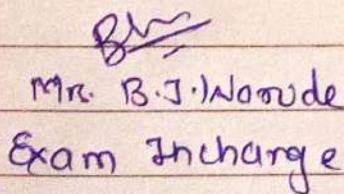 Mr. B.J. Narude
Exam Incharge